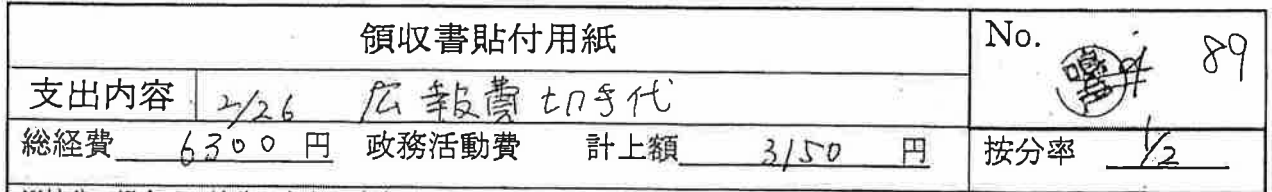 領収書貼付用紙
No. 89
支出内容 2/26 広報費 切手代
総経費 6300 円 政務活動費 計上額 3150 円 按分率 1/2